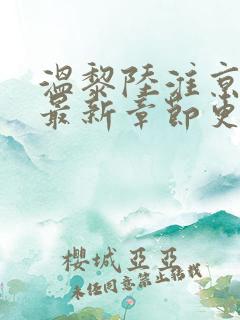 温黎陆淮京
最新章节更
樱城亚亚
未经同意禁止转载